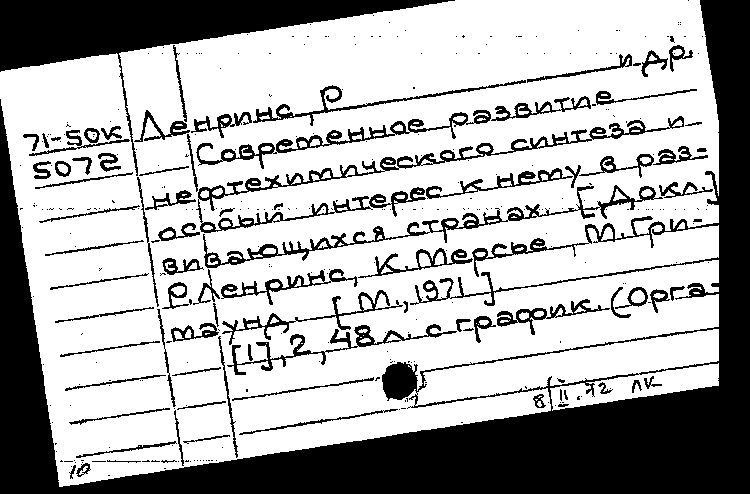 71-50К
5072
Ленринс, Р и др.
Современное развитие
нефтехимического синтеза и
особый интерес к нему в раз-
вивающихся странах. [Докл.]
Р. Ленринс, К. Мерсье, М. Гри-
маунд. [М., 1971].
[1], 2, 48 л. с график. (Орга-
8/II.72 ЛК
10